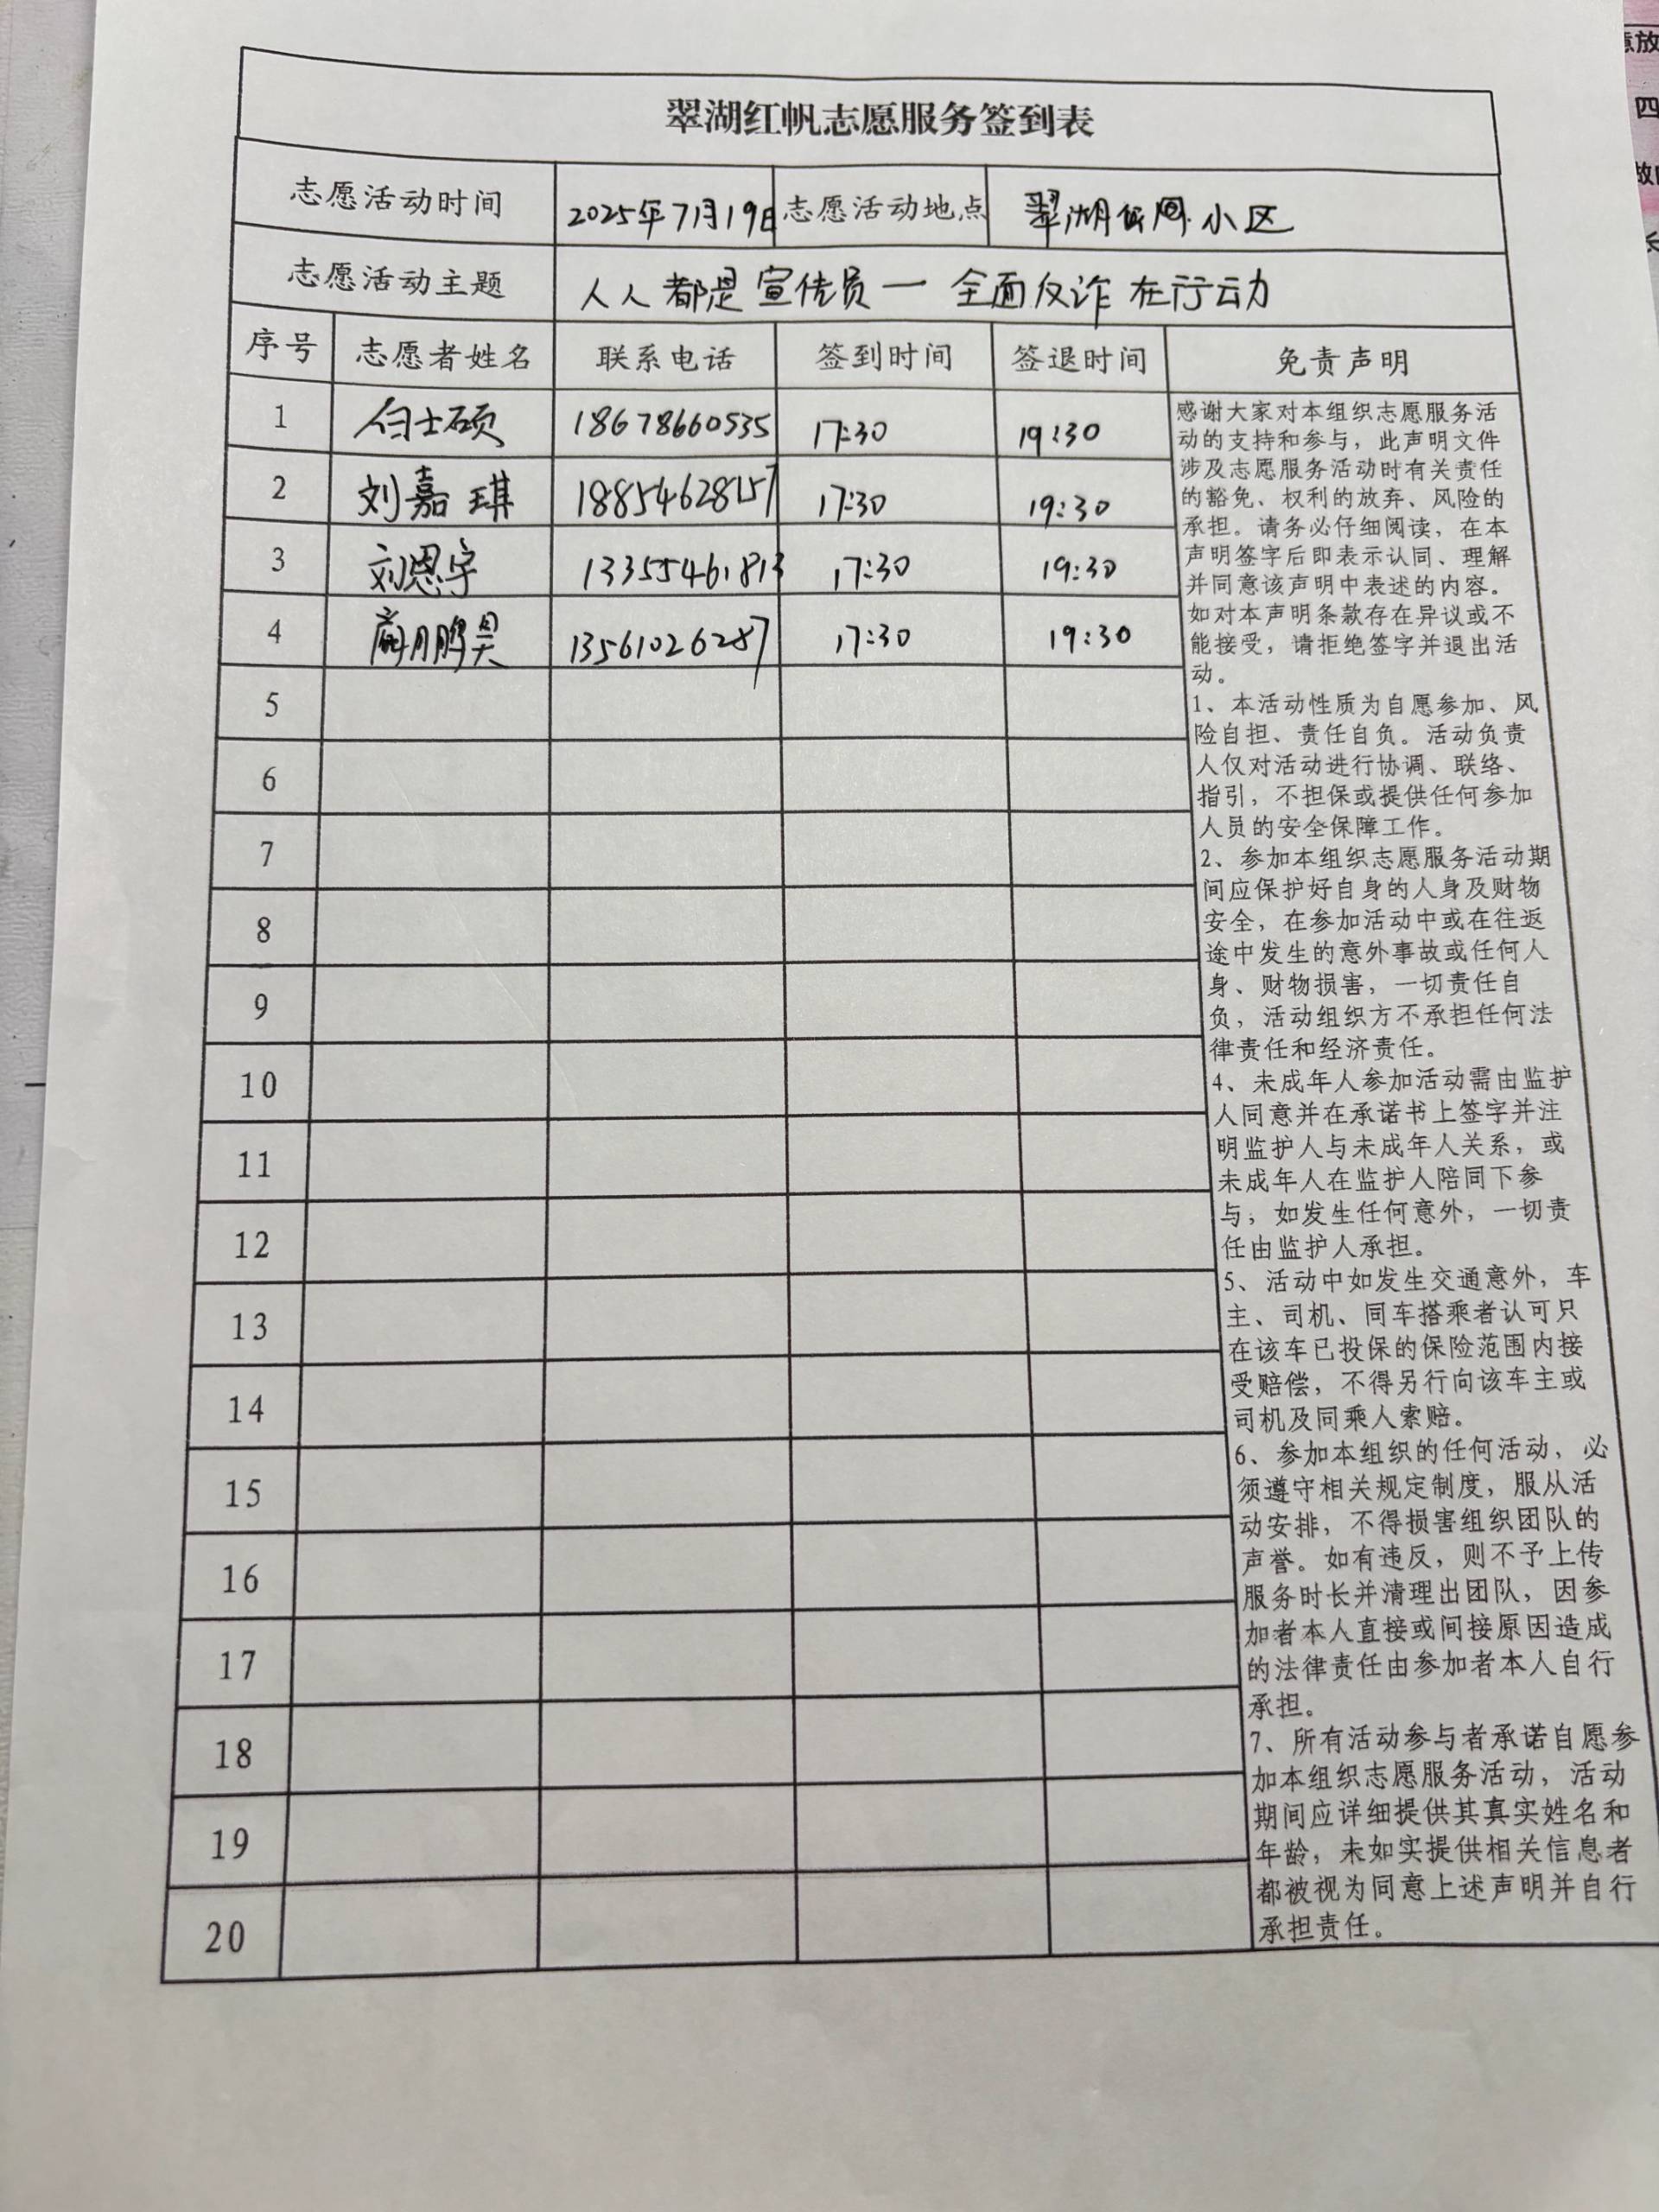 翠湖红帆志愿服务签到表
志愿活动时间 2025年7月19日 志愿活动地点 翠湖 小区
志愿活动主题 人人都是宣传员一全面反诈在行动
序号 志愿者姓名 联系电话 签到时间 签退时间 免责声明
1 白士硕 18678660535 17:30 19:30
2 刘嘉琪 18854628157 17:30 19:30
3 刘恩宇 13355461813 17:30 19:30
4 鹏昊 13561026287 17:30 19:30
5
6
7
8
9
10
11
12
13
14
15
16
17
18
19
20
感谢大家对本组织志愿服务活
动的支持和参与，此声明文件
涉及志愿服务活动时有关责任
的豁免、权利的放弃、风险的
承担。请务必仔细阅读，在本
声明签字后即表示认同、理解
并同意该声明中表述的内容。
如对本声明条款存在异议或不
能接受，请拒绝签字并退出活
动。
1、本活动性质为自愿参加、风
险自担、责任自负。活动负责
人仅对活动进行协调、联络、
指引，不担保或提供任何参加
人员的安全保障工作。
2、参加本组织志愿服务活动期
间应保护好自身的人身及财物
安全，在参加活动中或在往返
途中发生的意外事故或任何人
身、财物损害，一切责任自
负，活动组织方不承担任何法
律责任和经济责任。
4、未成年人参加活动需由监护
人同意并在承诺书上签字并注
明监护人与未成年人关系，或
未成年人在监护人陪同下参
与；如发生任何意外，一切责
任由监护人承担。
5、活动中如发生交通意外，车
主、司机、同车搭乘者认可只
在该车已投保的保险范围内接
受赔偿，不得另行向该车主或
司机及同乘人索赔。
6、参加本组织的任何活动，必
须遵守相关规定制度，服从活
动安排，不得损害组织团队的
声誉。如有违反，则不予上传
服务时长并清理出团队，因参
加者本人直接或间接原因造成
的法律责任由参加者本人自行
承担。
7、所有活动参与者承诺自愿参
加本组织志愿服务活动，活动
期间应详细提供其真实姓名和
年龄，未如实提供相关信息者
都被视为同意上述声明并自行
承担责任。
意放
四